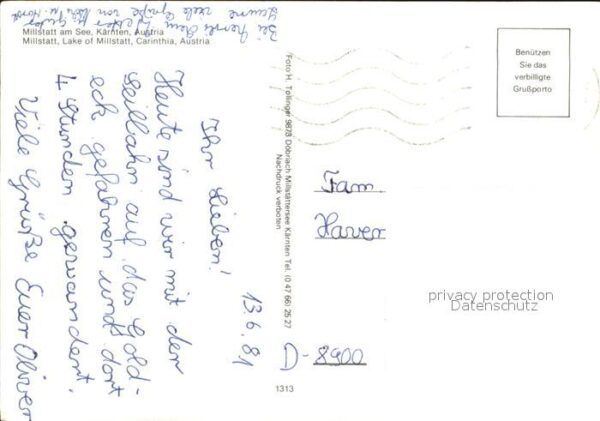 Millstatt am See, Kärnten, Austria
Millstatt, Lake of Millstatt, Carinthia, Austria
13.6.81
Ihr Lieben!
Heute sind wir mit der
Seilbahn auf das Gold-
eck gefahren und dort
4 Stunden gewandert.
Viele Grüße Euer Oliver
Bei
Laune viele Grüße von
Foto H. Tollinger 9873 Döbriach Millstättersee Kärnten Tel. (0 47 66) 25 27
Nachdruck verboten
Benützen
Sie das
verbilligte
Grußporto
Fam.
Haver
privacy protection
Datenschutz
D-8900
1313